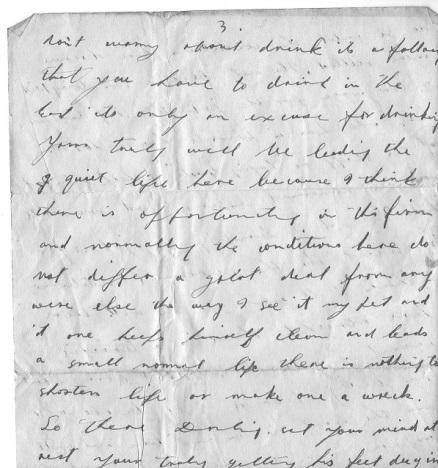 3.
don't worry about drink its a fallacy
that you have to drink in the
East its only an excuse for drinking
Yours truly will be leading the
quiet life here because I think
there is opportunity in this firm
and normally the conditions here do
not differ a great deal from any
were else the way I see it my pet and
if one keeps himself clean and leads
a small normal life there is nothing to
shorten life or make one a wreck.
So there Darling set your mind at
rest your truly getting his feet dug in